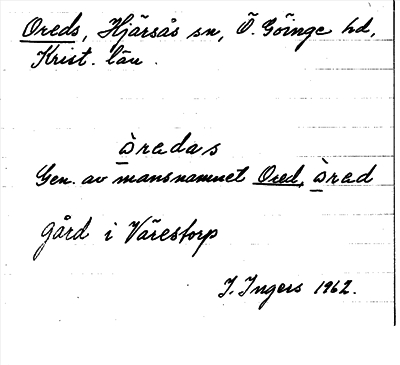 Oreds, Hjärsås sn, Ö. Göinge hd,
Krist. län.
òredas
Gen. av mansnamnet Ored, òred
gård i Värestorp
I. Ingers 1962.